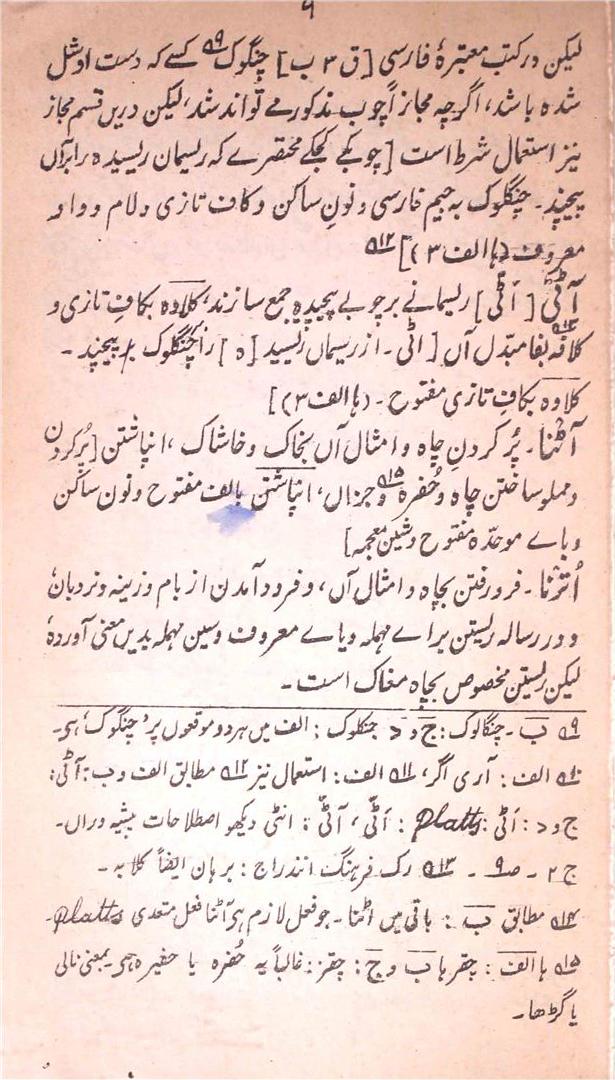 ۹
لیکن در کتب معتبرهٔ فارسی [ق ۳ ب] چنگوک ۹ کسے کہ دست او شل
شدہ باشد، اگرچہ مجازاً چوب مذکور مے تواند شد، لیکن دریں قسم مجاز
نیز استعمال شرط است [چوبکے کجکے مختصرے کہ ریسمان ریسیدہ را برآں
پیچند۔ چنگلوک بہ جیم فارسی و نونِ ساکن و کاف تازی و لام و واو
معروف (ہا الف ۳)] ۱۲
آٹی [اَٹی] ریسمانے بر چوبے پیچیدہ جمع سازند، کلاوہ بکافِ تازی و
کلافہ ۱۳ بفا مبدّل آں [اٹی۔ از ریسماں ریسید [ہ] را چنگلوک بر پیچند۔
کلاوہ بکافِ تازی مفتوح۔ (ہا الف ۳)]
آٹنا۔ پُر کردنِ چاہ و امثال آں بخاک و خاشاک، انباشتن [پُر کردن
و مملو ساختن چاہ و حُفرہ ۱۵ و جزاں، انباشتن بالف مفتوح و نون ساکن
و باے موحّدہ مفتوح و شین معجمہ]
اُترنا۔ فرو رفتن بچاہ و امثال آں، و فرود آمدن از بام و زینہ و نردبان،
و در رسالہ ریستن براے مہملہ و یاے معروف و سین مہملہ بدیں معنی آوردہ
لیکن ریستن مخصوص بچاہ مغاک است۔
۹ ب۔ چنگالوک: ج و د جنکلوک: الف میں ہر دو موقعوں پر 'چنگوک' ہی۔
۱۰ الف: آری اگر، ۱۱ الف: استعمال نیز ۱۲ مطابق الف و ب: آٹی:
ج و د: اَٹی: Platts: اَٹّی، آٹّی: انٹی دیکھو اصطلاحات پیشہ وراں۔
ج ۲۔ صـ ۹۔ ۱۳ رک فرہنگ انندراج: برہان ایضاً کلابہ۔
۱۴ مطابق ب: باقی میں اٹنا۔ جو فعل لازم ہی آٹنا فعل متعدی Platts۔
۱۵ ہا الف: چقر ہا ب و ج: چقز: غالباً یہ حُفرہ یا حفیرہ ہی بمعنی نالی
یا گڑھا۔